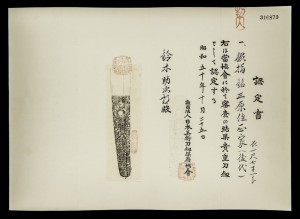 316873
認定書
一、脇指 銘 三原住正家(後代)
長一尺七寸一分
右は當協會に於て審査の結果貴重刀劔
として認定する
昭和五十年十月二十五日
財団法人日本美術刀劔保存協會
鈴木助次郎殿